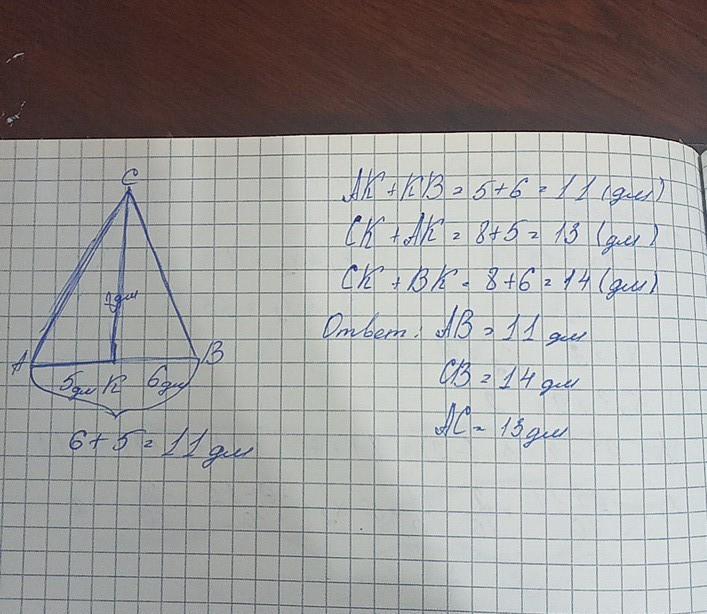 C
AK + KB = 5 + 6 = 11 (дм)
CK + AK = 8 + 5 = 13 (дм)
CK + BK = 8 + 6 = 14 (дм)
дм
Ответ: AB = 11 дм
A
B
5 дм K 6 дм
CB = 14 дм
AC = 13 дм
6 + 5 = 11 дм